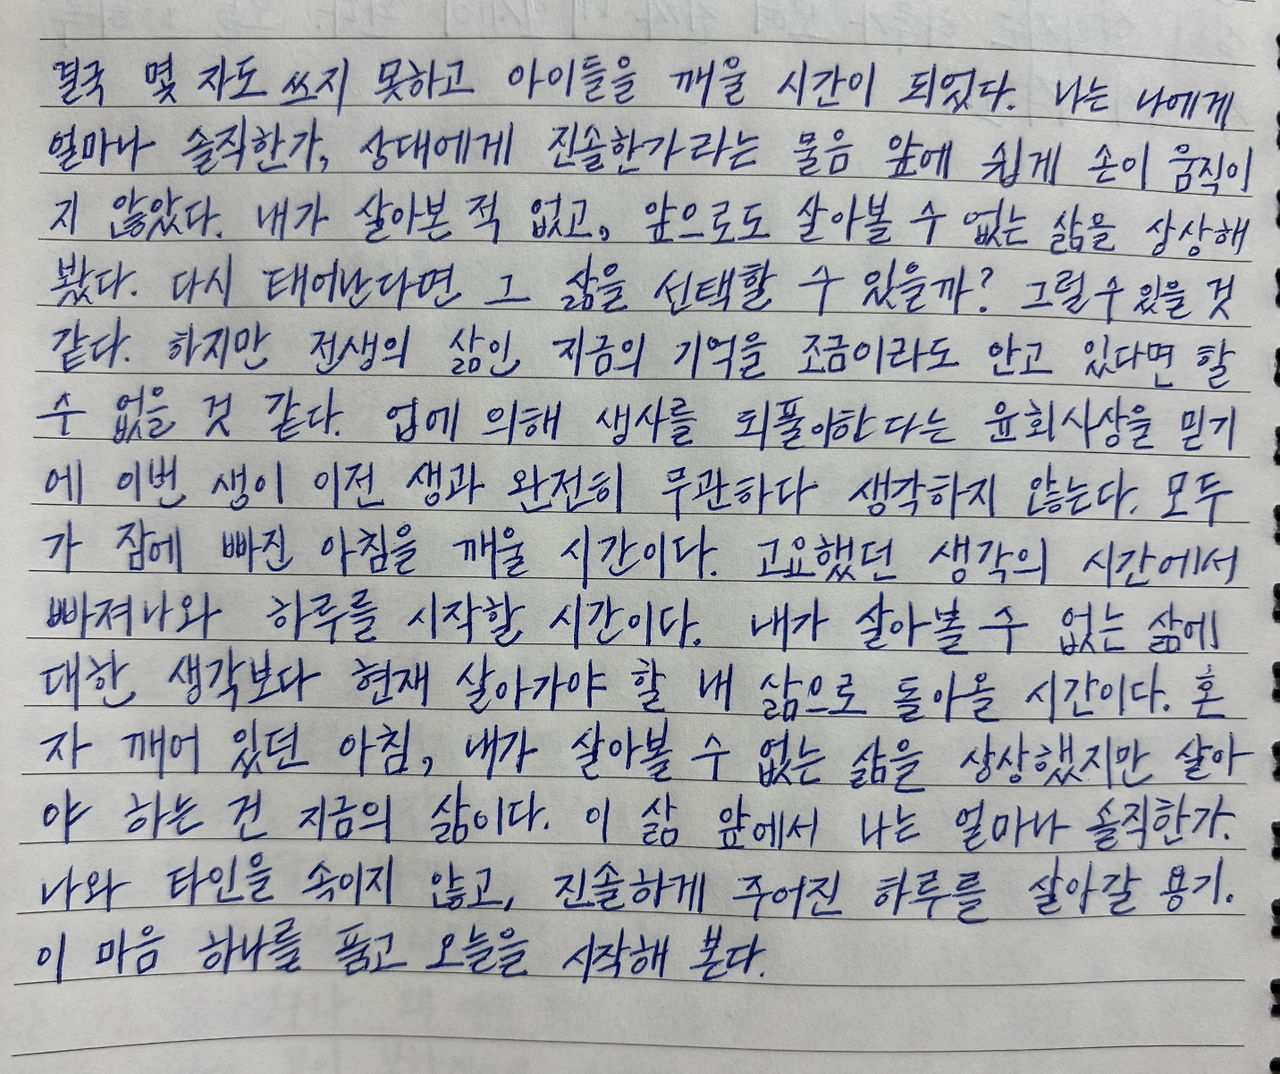 결국 몇 자도 쓰지 못하고 아이들을 깨울 시간이 되었다. 나는 나에게
얼마나 솔직한가, 상대에게 진솔한가라는 물음 앞에 쉽게 손이 움직이
지 않았다. 내가 살아본 적 없고, 앞으로도 살아볼 수 없는 삶을 상상해
봤다. 다시 태어난다면 그 삶을 선택할 수 있을까? 그럴 수 있을 것
같다. 하지만 전생의 삶인 지금의 기억을 조금이라도 안고 있다면 할
수 없을 것 같다. 업에 의해 생사를 되풀이한다는 윤회사상을 믿기
에 이번 생이 이전 생과 완전히 무관하다 생각하지 않는다. 모두
가 잠에 빠진 아침을 깨울 시간이다. 고요했던 생각의 시간에서
빠져나와 하루를 시작할 시간이다. 내가 살아볼 수 없는 삶에
대한 생각보다 현재 살아가야 할 내 삶으로 돌아올 시간이다. 혼
자 깨어 있던 아침, 내가 살아볼 수 없는 삶을 상상했지만 살아
야 하는 건 지금의 삶이다. 이 삶 앞에서 나는 얼마나 솔직한가.
나와 타인을 속이지 않고, 진솔하게 주어진 하루를 살아갈 용기.
이 마음 하나를 품고 오늘을 시작해 본다.